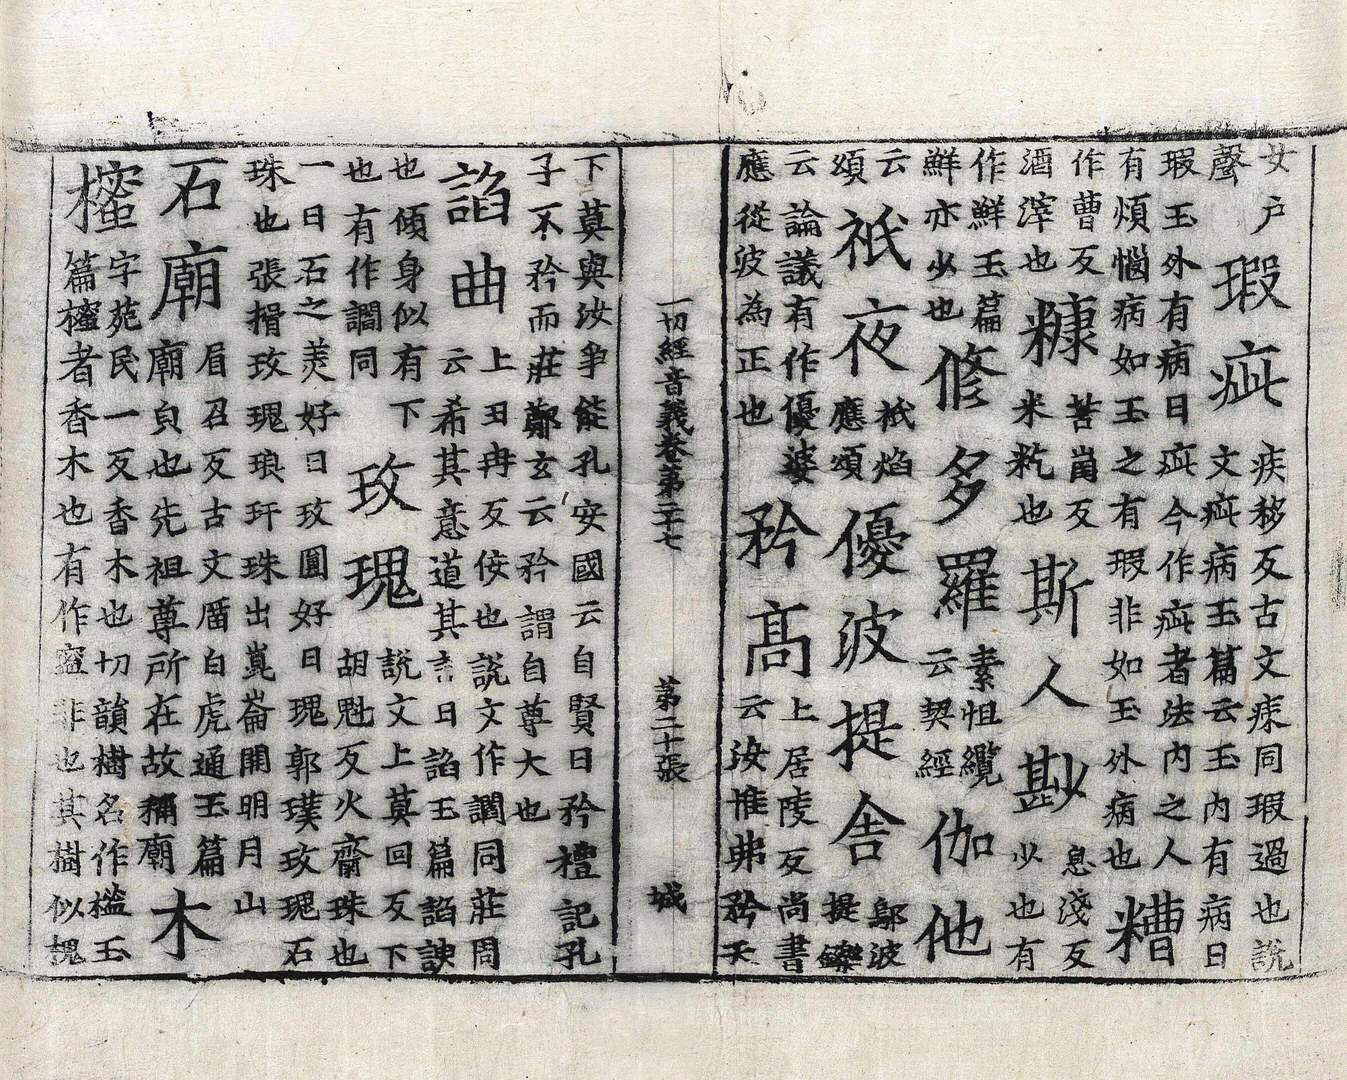 女戶聲瑕疵疾移反古文㾊同瑕過也説文疵病玉篇云玉内有病曰
瑕玉外有病曰疵今作疵者法内之人有煩惱病如玉之有瑕非如玉外病也糟
作曹反酒滓也糠苦崗反米籺也斯人尠息淺反少也有
作鮮玉篇鮮亦少也修多羅素怛纜云契經伽他
云頌祇夜祇焰應頌優波提舍鄔波提鑠
云論議有作優婆應從波為正也矜高上居陵反尚書云汝惟弗矜天
一切經音義卷第二十七 第二十張 城
下莫與汝爭能孔安國云自賢曰矜禮記孔子不矜而莊鄭玄云矜謂自尊大也
諂曲上丑冉反佞也説文作讇同莊周云希其意道其言曰諂玉篇諂諛
也傾身似有下也有作讇同玫瑰説文上莫回反下胡魁反火齊珠也
一曰石之美好曰玫圓好曰瑰郭璞玫瑰石珠也張揖玫瑰琅玕珠出崑崙開明月山
石廟眉召反古文庿白虎通玉篇廟皃也先祖尊所在故稱廟木
櫁字苑民一反香木也切韻樹名作樒玉篇櫁者香木也有作㝥非也其樹似槐